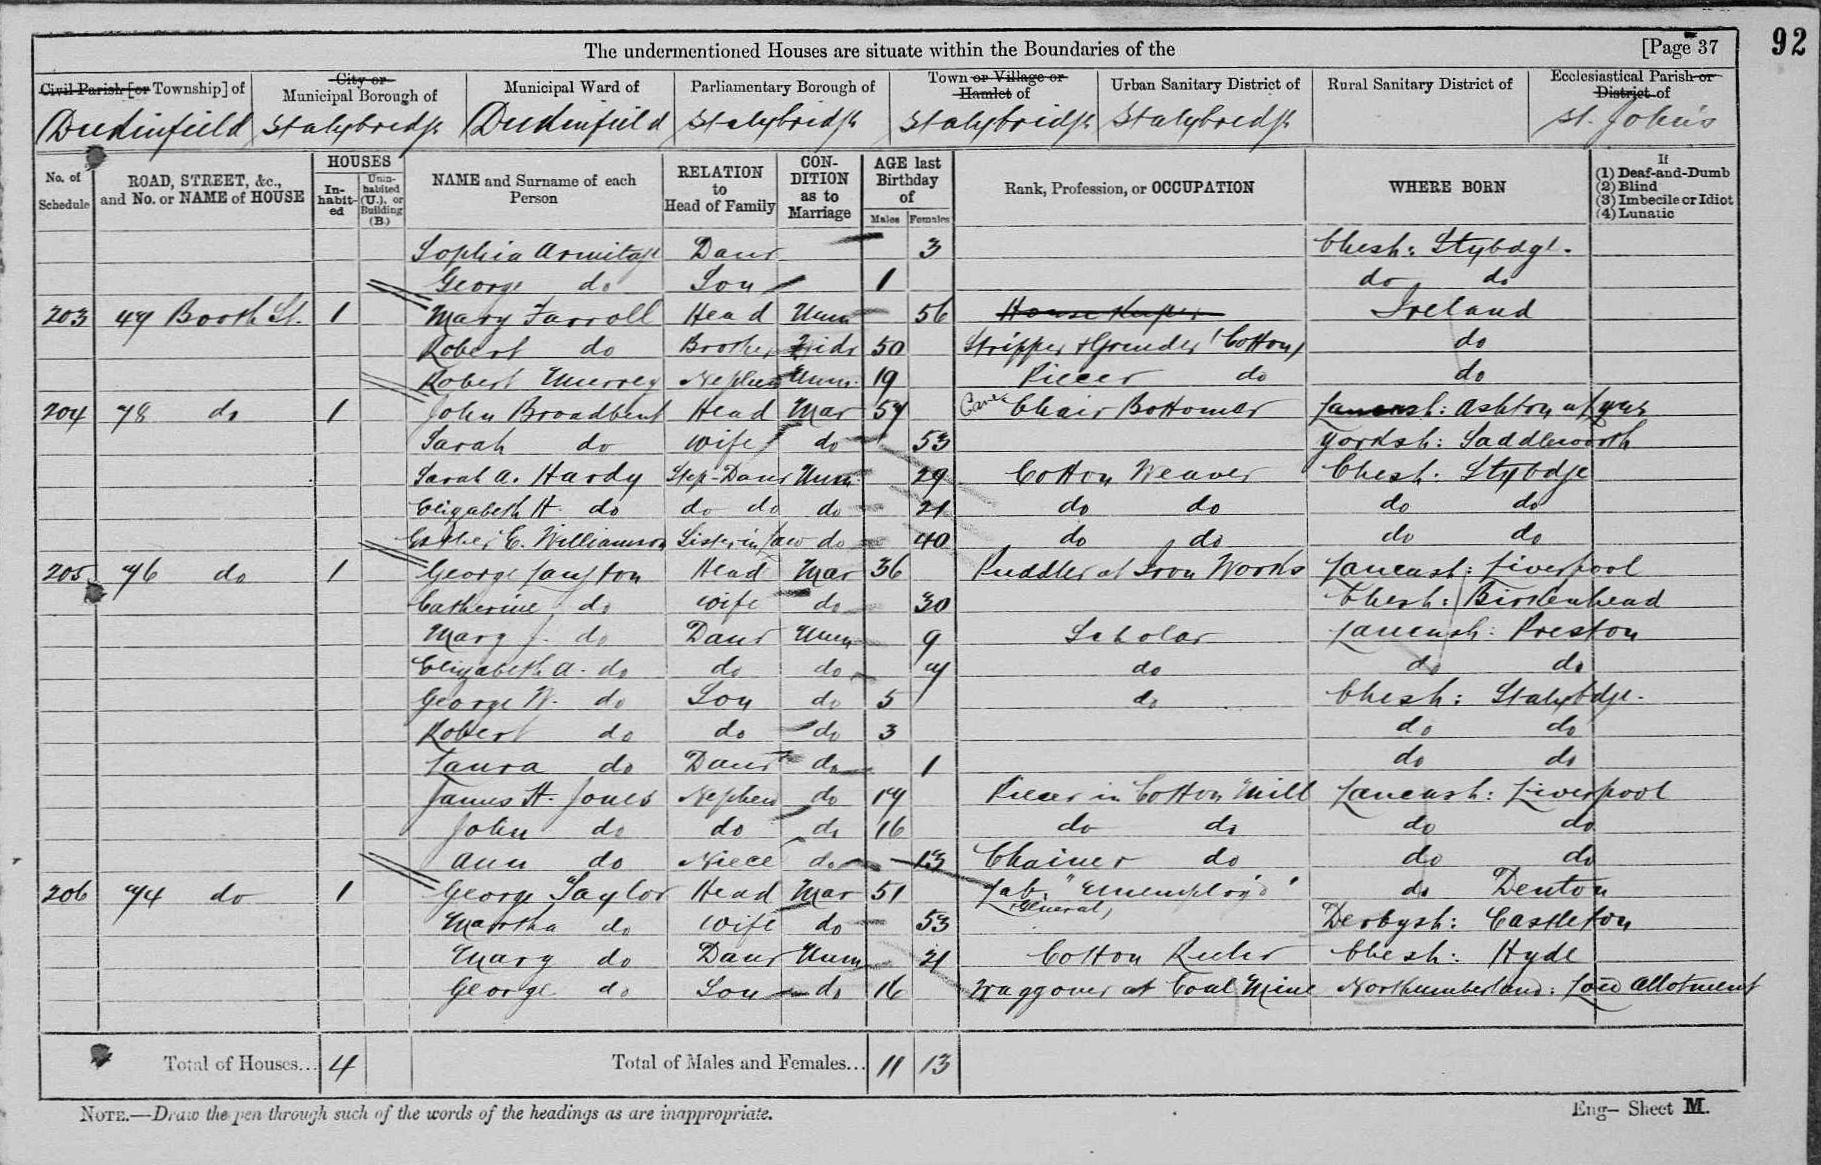 The undermentioned Houses are situate within the Boundaries of the [Page 37 92
Civil Parish [or Township] of City or Municipal Borough of Municipal Ward of Parliamentary Borough of Town or Village or Hamlet of Urban Sanitary District of Rural Sanitary District of Ecclesiastical Parish or District of
Dukinfield Stalybridge Dukinfield Stalybridge Stalybridge Stalybridge St. John's
No. of Schedule ROAD, STREET, &c., and No. or NAME of HOUSE HOUSES In-habit-ed Unin-habited (U.), or Building (B.) NAME and Surname of each Person RELATION to Head of Family CON-DITION as to Marriage AGE last Birthday of Males Females Rank, Profession, or OCCUPATION WHERE BORN If (1) Deaf-and-Dumb (2) Blind (3) Imbecile or Idiot (4) Lunatic
Sophia Armitage Daur 3 Chesh: Stybdge.
George do Son 1 do do
203 47 Booth St. 1 Mary Farroll Head Unm 56 House Keeper Ireland
Robert do Brother Widr 50 Stripper & Grinder (Cotton) do
Robert Murrey Nephew Unm. 19 Piecer do do
204 78 do 1 John Broadbent Head Mar 57 Cane Chair Bottomer Lancash: Ashton u/Lyne
Sarah do wife do 53 Yorksh: Saddleworth
Sarah A. Hardy Step-Daur Unm 29 Cotton Weaver Chesh: Stybdge
Elizabeth H. do do do do 21 do do do do
Esther E. Williamson Sister in law do 40 do do do do
205 76 do 1 George Langton Head Mar 36 Puddler at Iron Works Lancash: Liverpool
Catherine do wife do 30 Chesh: Birkenhead
Mary J. do Daur Unm 9 Scholar Lancash: Preston
Elizabeth A. do do do 7 do do do
George W. do Son do 5 do Chesh: Stalybdge.
Robert do do do 3 do do
Laura do Daur do 1 do do
James H. Jones Nephew do 17 Piecer in Cotton Mill Lancash: Liverpool
John do do do 16 do do do do
Ann do Niece do 13 Chainer do do do
206 74 do 1 George Taylor Head Mar 51 Lab. "Unemploy'd" (General) do Denton
Martha do wife do 53 Derbysh: Castleton
Mary do Daur Unm 21 Cotton Reeler Chesh: Hyde
George do Son do 16 Waggoner at Coal Mine Northumberland: Low Allotment
Total of Houses... 4 Total of Males and Females... 11 13
NOTE.—Draw the pen through such of the words of the headings as are inappropriate. Eng- Sheet M.